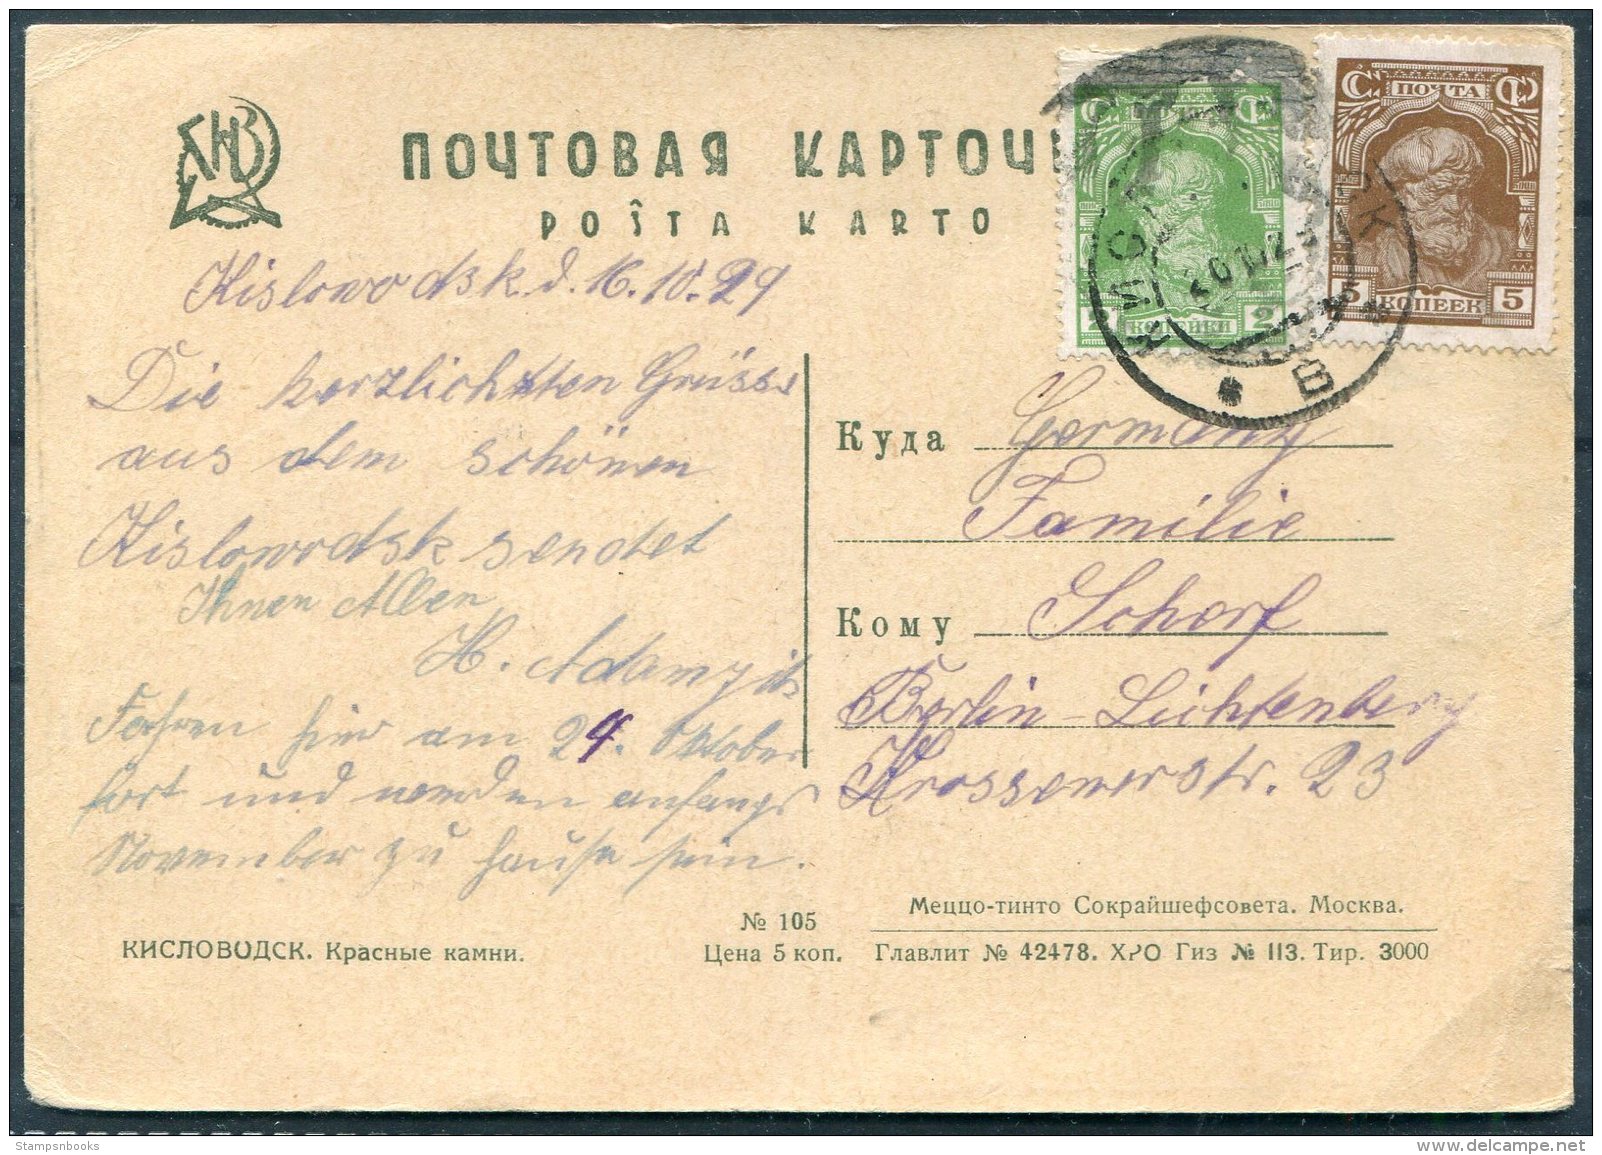 ПОЧТОВАЯ КАРТОЧ
POŜTA KARTO
Kislowodsk d. 16.10.29
Die herzlichsten Grüsse
aus dem schönen
Kislowodsk sendet
Ihnen Allen
H.
Fahren hier am 29. Oktober
fort und werden anfangs
November zu Hause sein.
ПОЧТА
2 КОПЕЙКИ 2
ПОЧТА
5 КОПЕЕК 5
КИСЛ СК
В
Куда Germany
Familie
Кому Scharf
Berlin-Lichtenberg
Krossenerstr. 23
№ 105
Цена 5 коп.
КИСЛОВОДСК. Красные камни.
Меццо-тинто Сокрайшефсовета. Москва.
Главлит № 42478. ХРО Гиз № 113. Тир. 3000
Stampsnbooks
www.delcampe.net